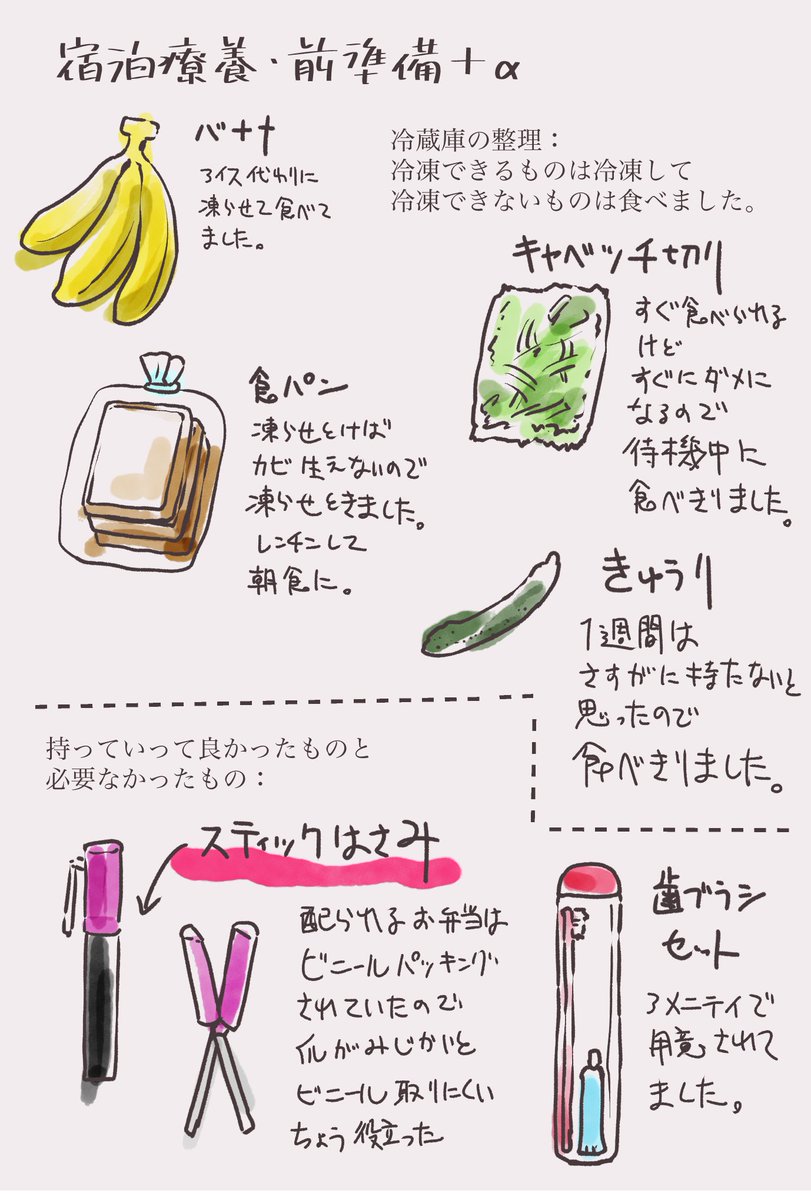 宿泊療養・前準備+α
バナナ
アイス代わりに
凍らせて食べて
ました。
冷蔵庫の整理：
冷凍できるものは冷凍して
冷凍できないものは食べました。
キャベツ千切り
すぐ食べられる
けど
すぐにダメに
なるので
待機中に
食べきりました。
食パン
凍らせとけば
カビ生えないので
凍らせときました。
レンチンして
朝食に。
きゅうり
1週間は
さすがに持たないと
思ったので
食べきりました。
持っていって良かったものと
必要なかったもの：
スティックはさみ
配られるお弁当は
ビニールパッキング
されていたので
爪がみじかいと
ビニール取りにくい
ちょう役立った
歯ブラシ
セット
アメニティで
用意されて
ました。